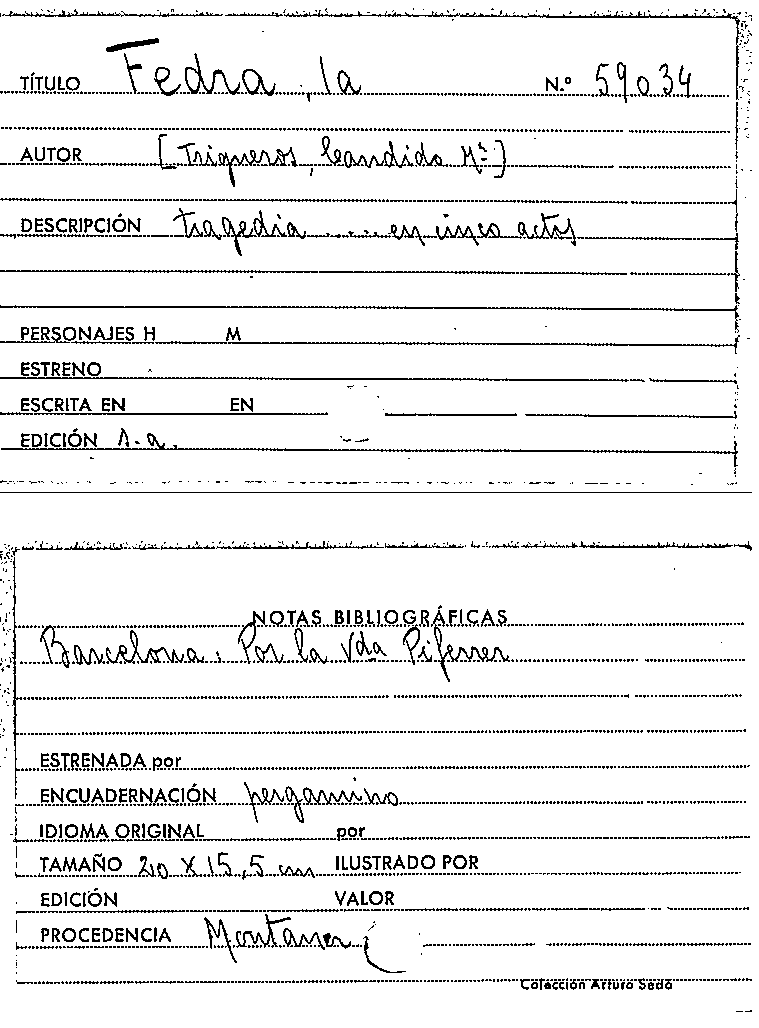 TÍTULO Fedra, la N.º 59034
AUTOR [Trigueros, Candido Mª]
DESCRIPCIÓN tragedia ..... en cinco actos
PERSONAJES H M
ESTRENO
ESCRITA EN EN
EDICIÓN s.a.
NOTAS BIBLIOGRÁFICAS
Barcelona. Por la Vda Piferrer
ESTRENADA por
ENCUADERNACIÓN pergamino
IDIOMA ORIGINAL por
TAMAÑO 20 X 15,5 cm ILUSTRADO POR
EDICIÓN VALOR
PROCEDENCIA Montaner
Colección Arturo Sedó